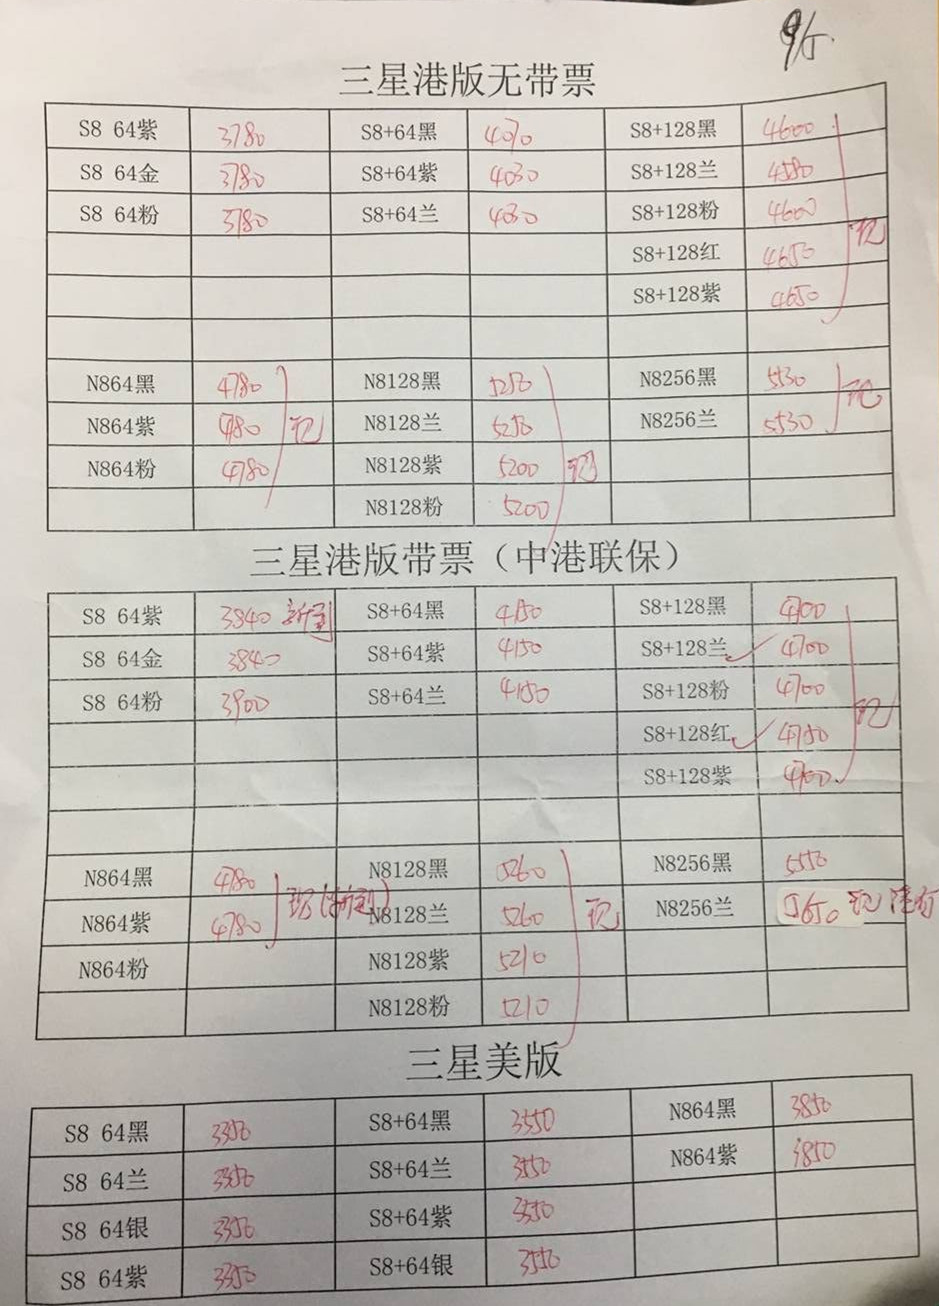 9/5.
三星港版无带票
S8 64紫 3780 S8+64黑 4070 S8+128黑 4600
S8 64金 3780 S8+64紫 4030 S8+128兰 4580
S8 64粉 3780 S8+64兰 4030 S8+128粉 4600
S8+128红 4650 现
S8+128紫 4650
N864黑 4780 N8128黑 5250 N8256黑 5530
N864紫 4780 现 N8128兰 5250 N8256兰 5530 现
N864粉 4780 N8128紫 5200 现
N8128粉 5200
三星港版带票（中港联保）
S8 64紫 3840 新到 S8+64黑 4150 S8+128黑 4700
S8 64金 3840 S8+64紫 4150 S8+128兰 4700
S8 64粉 3900 S8+64兰 4150 S8+128粉 4700 现
S8+128红 4750
S8+128紫 4700
N864黑 4780 N8128黑 5260 N8256黑 5550
N864紫 4780 现(新到) N8128兰 5260 现 N8256兰 5650 现
N864粉 N8128紫 5210
N8128粉 5210
三星美版
S8 64黑 3350 S8+64黑 3550 N864黑 3850
S8 64兰 3350 S8+64兰 3550 N864紫 3850
S8 64银 3350 S8+64紫 3550
S8 64紫 3350 S8+64银 3550